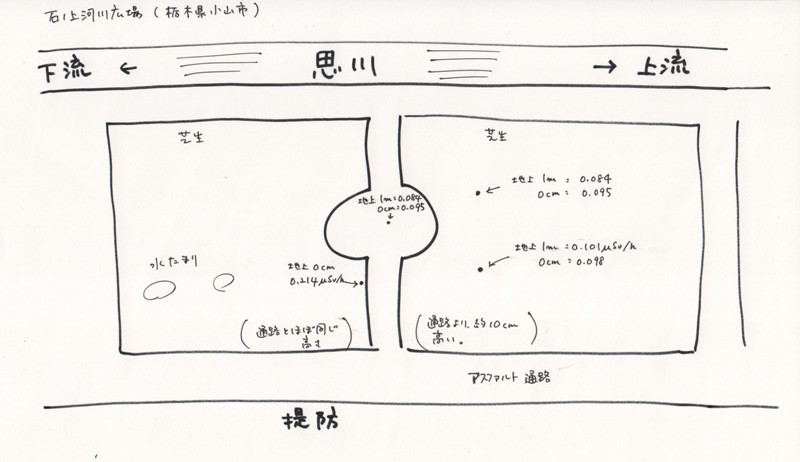 石ノ上河川広場(栃木県小山市)
下流 ← 思川 → 上流
芝生
芝生
地上 1m = 0.084
0cm = 0.095
地上 1m = 0.084
0cm = 0.095
地上 1m = 0.101μSv/h
0cm = 0.098
水たまり
地上 0cm
0.214μSv/h
(通路とほぼ同じ
高さ)
(通路より、約10cm
高い。)
アスファルト通路
堤防